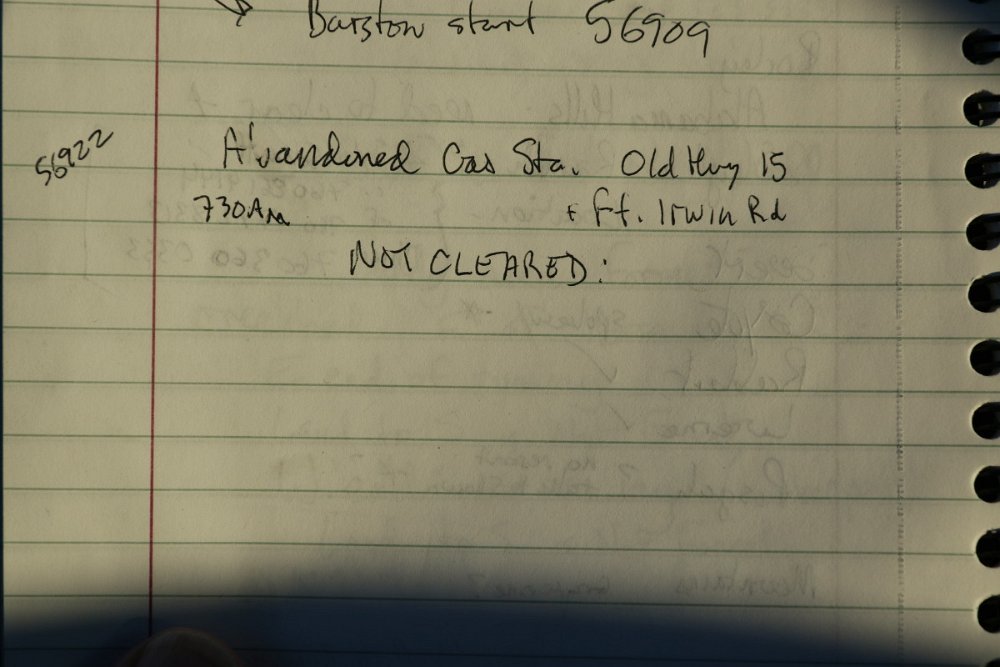 Barstow start 56909
56922 Abandoned Gas Sta. Old Hwy 15
730AM + Ft. Irwin Rd
NOT CLEARED: